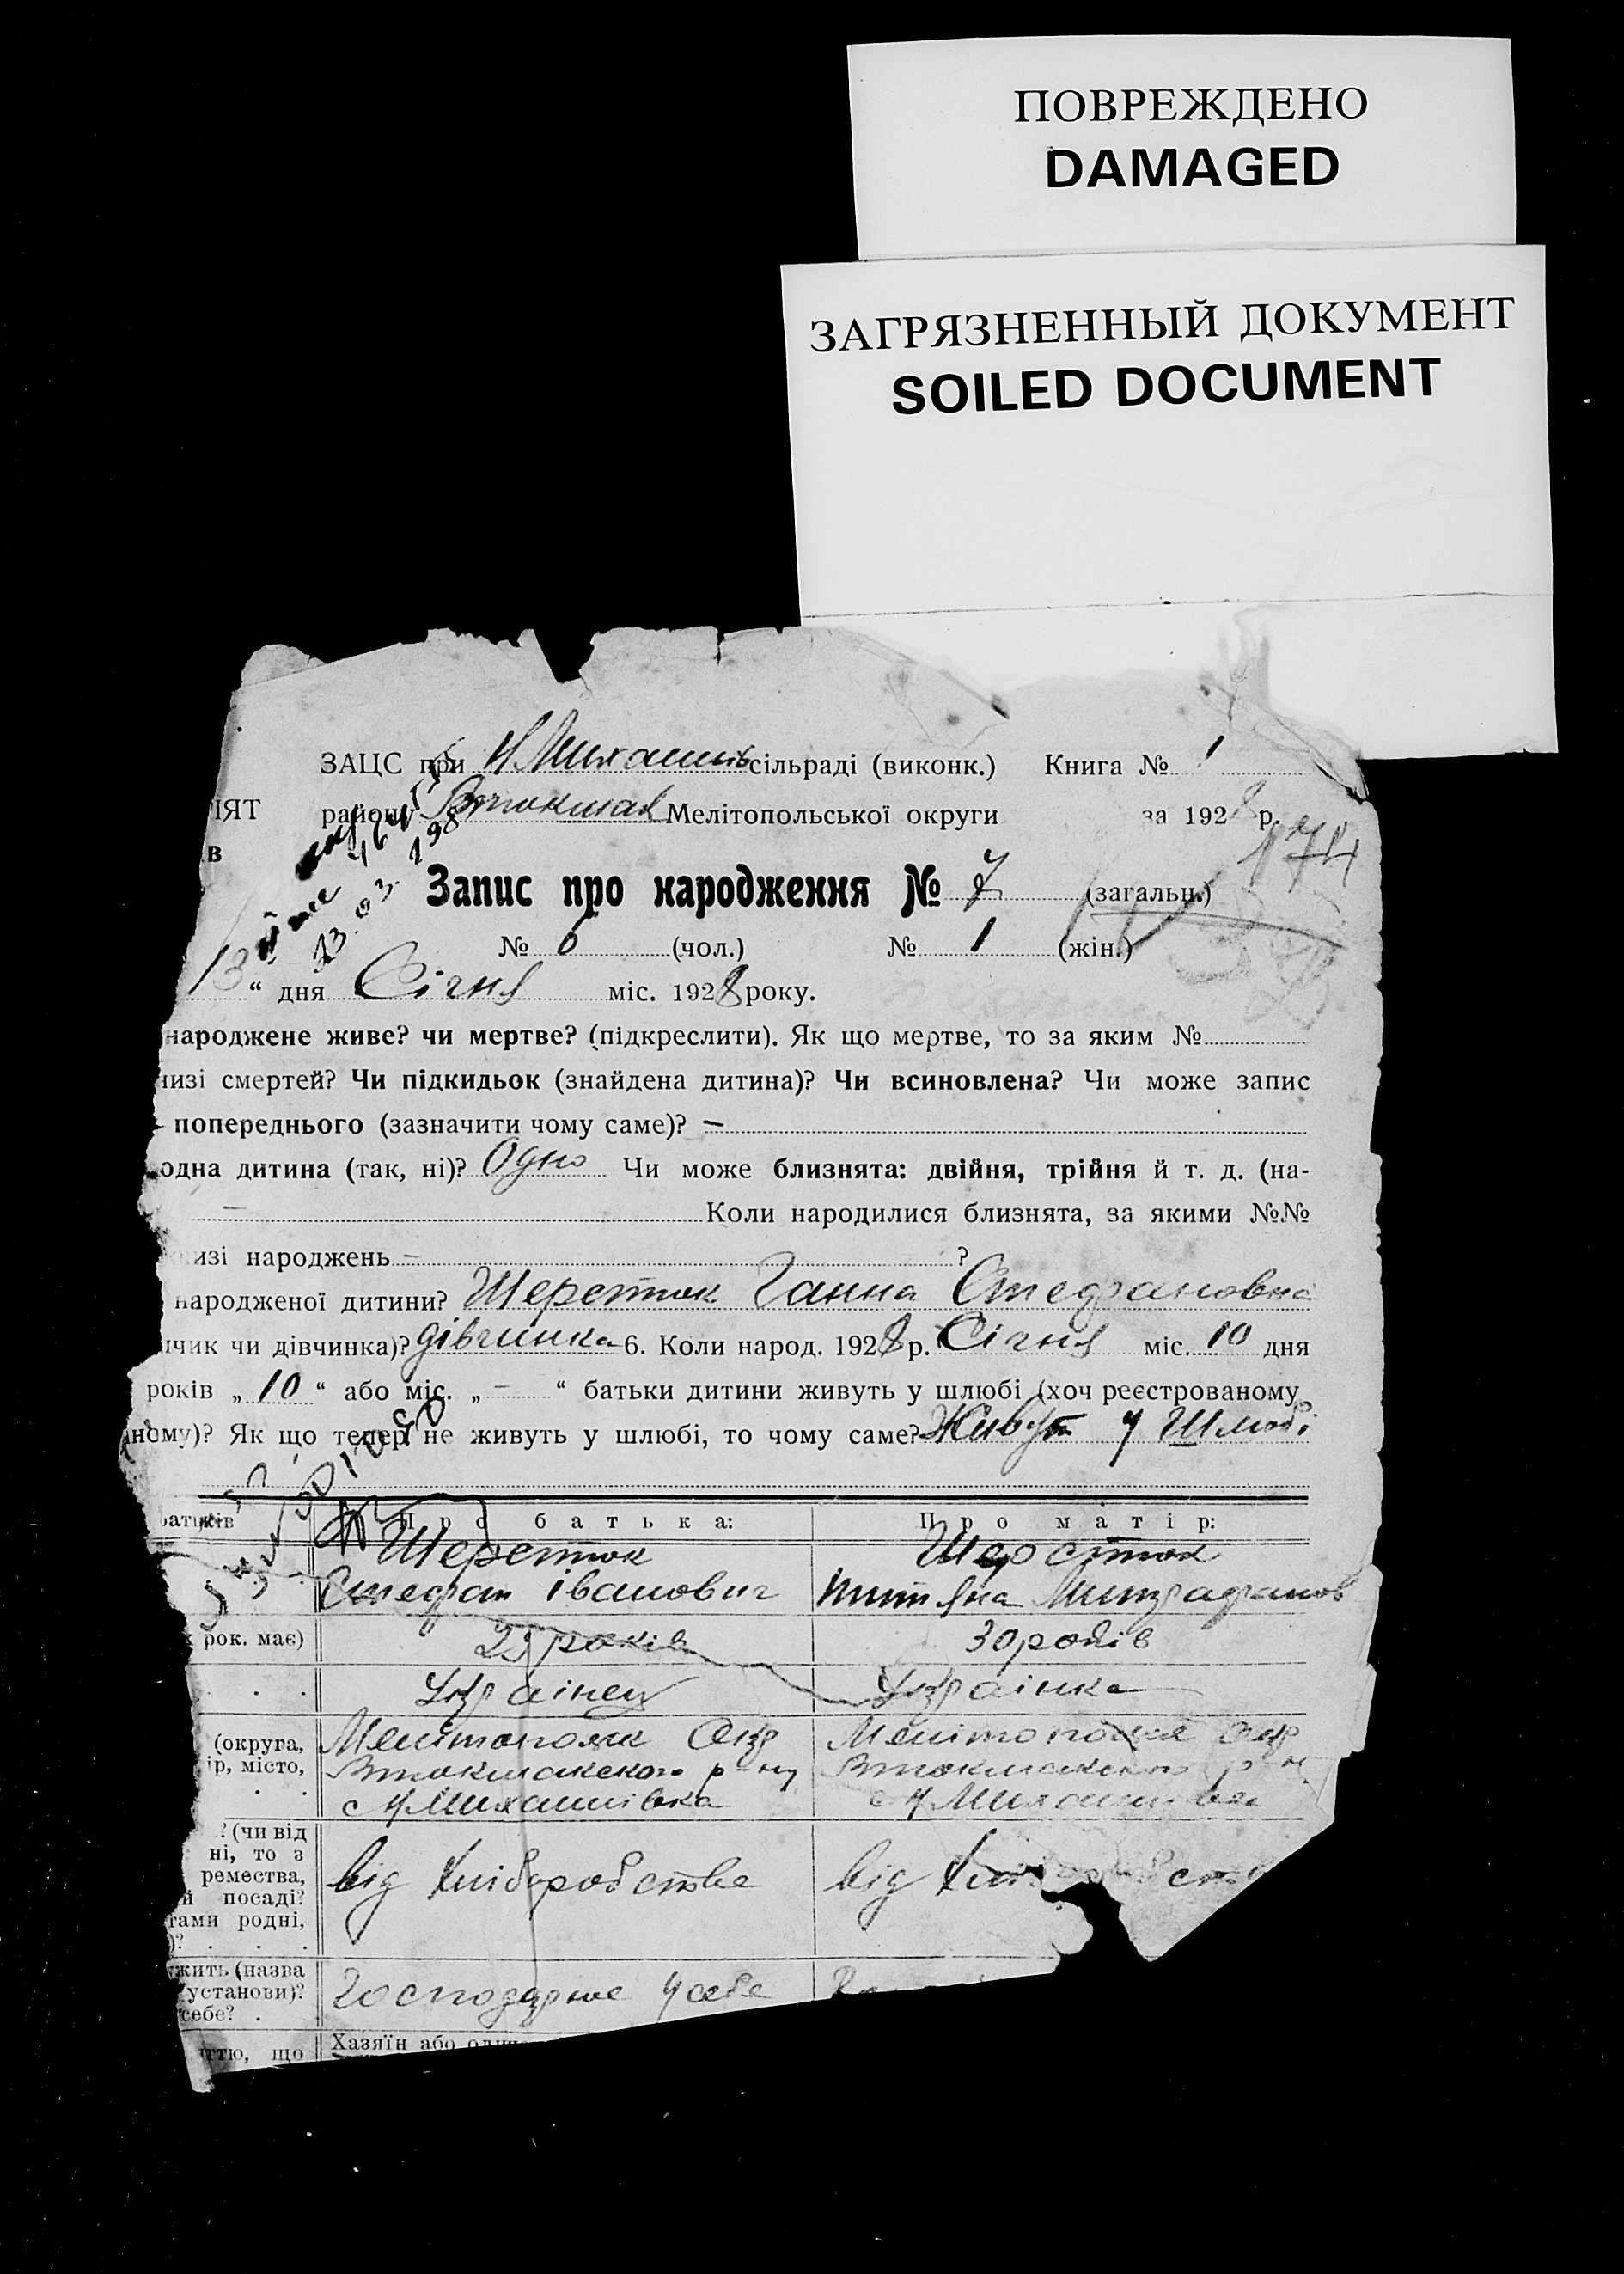 ПОВРЕЖДЕНО
DAMAGED
ЗАГРЯЗНЕННЫЙ ДОКУМЕНТ
SOILED DOCUMENT
ЗАЦС при сільраді (виконк.) Книга № 1
району Мелітопольської округи за 1928 р.
ІЯТ
в
174
Запис про народження № 7 (загальн.)
№ 6 (чол.) № 1 (жін.)
13 “ дня Січня міс. 1928 року.
народжене живе? чи мертве? (підкреслити). Як що мертве, то за яким №
изі смертей? Чи підкидьок (знайдена дитина)? Чи всиновлена? Чи може запис
попереднього (зазначити чому саме)? —
одна дитина (так, ні)? Одно Чи може близнята: двійня, трійня й т. д. (на-
— Коли народилися близнята, за якими №№
изі народжень — ?
народженої дитини? Шерстюк Ганна Стефановна
чик чи дівчинка)? дівчинка 6. Коли народ. 1928 р. Січня міс. 10 дня
років „ 10 “ або міс. „ — “ батьки дитини живуть у шлюбі (хоч реєстрованому
ному)? Як що тепер не живуть у шлюбі, то чому саме? Живут у Шлюбі
батьків Про батька: Про матір:
Шерстюк Шерстюк
Стефан Іванович
рок. має) років 30 років
Українец Українка
(округа, Мелітопольск Окр Мелітопольск Окр
ір, місто, Втокмакского р-ну
с Н Михайлівка с Н Михайлівка
? (чи від
ні, то з
ремества, від Хліборобства від
й посаді?
тами родні,
)?
ужить (назва
установи)? Господарює у себе
себе?
ттю, що Хазяїн або